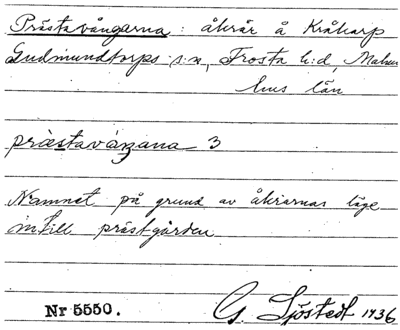 Prästavångarna: åkrar å Kråkarp
Gudmundtorps s:n, Frosta h:d, Malmö
hus län
præstavåŋana 3
Namnet på grund av åkrarnas läge
intill prästgården
Nr 5550. G. Sjöstedt 1936